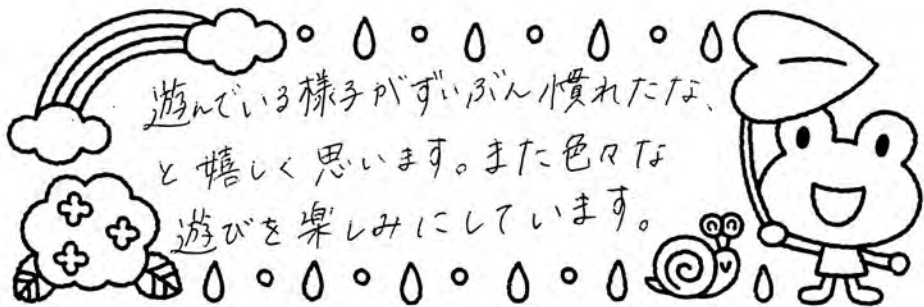 遊んでいる様子がずいぶん慣れたな、
と嬉しく思います。また色々な
遊びを楽しみにしています。